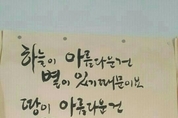 하늘이 아름다운건
별이 있기때문이보
땅이 아름다운건